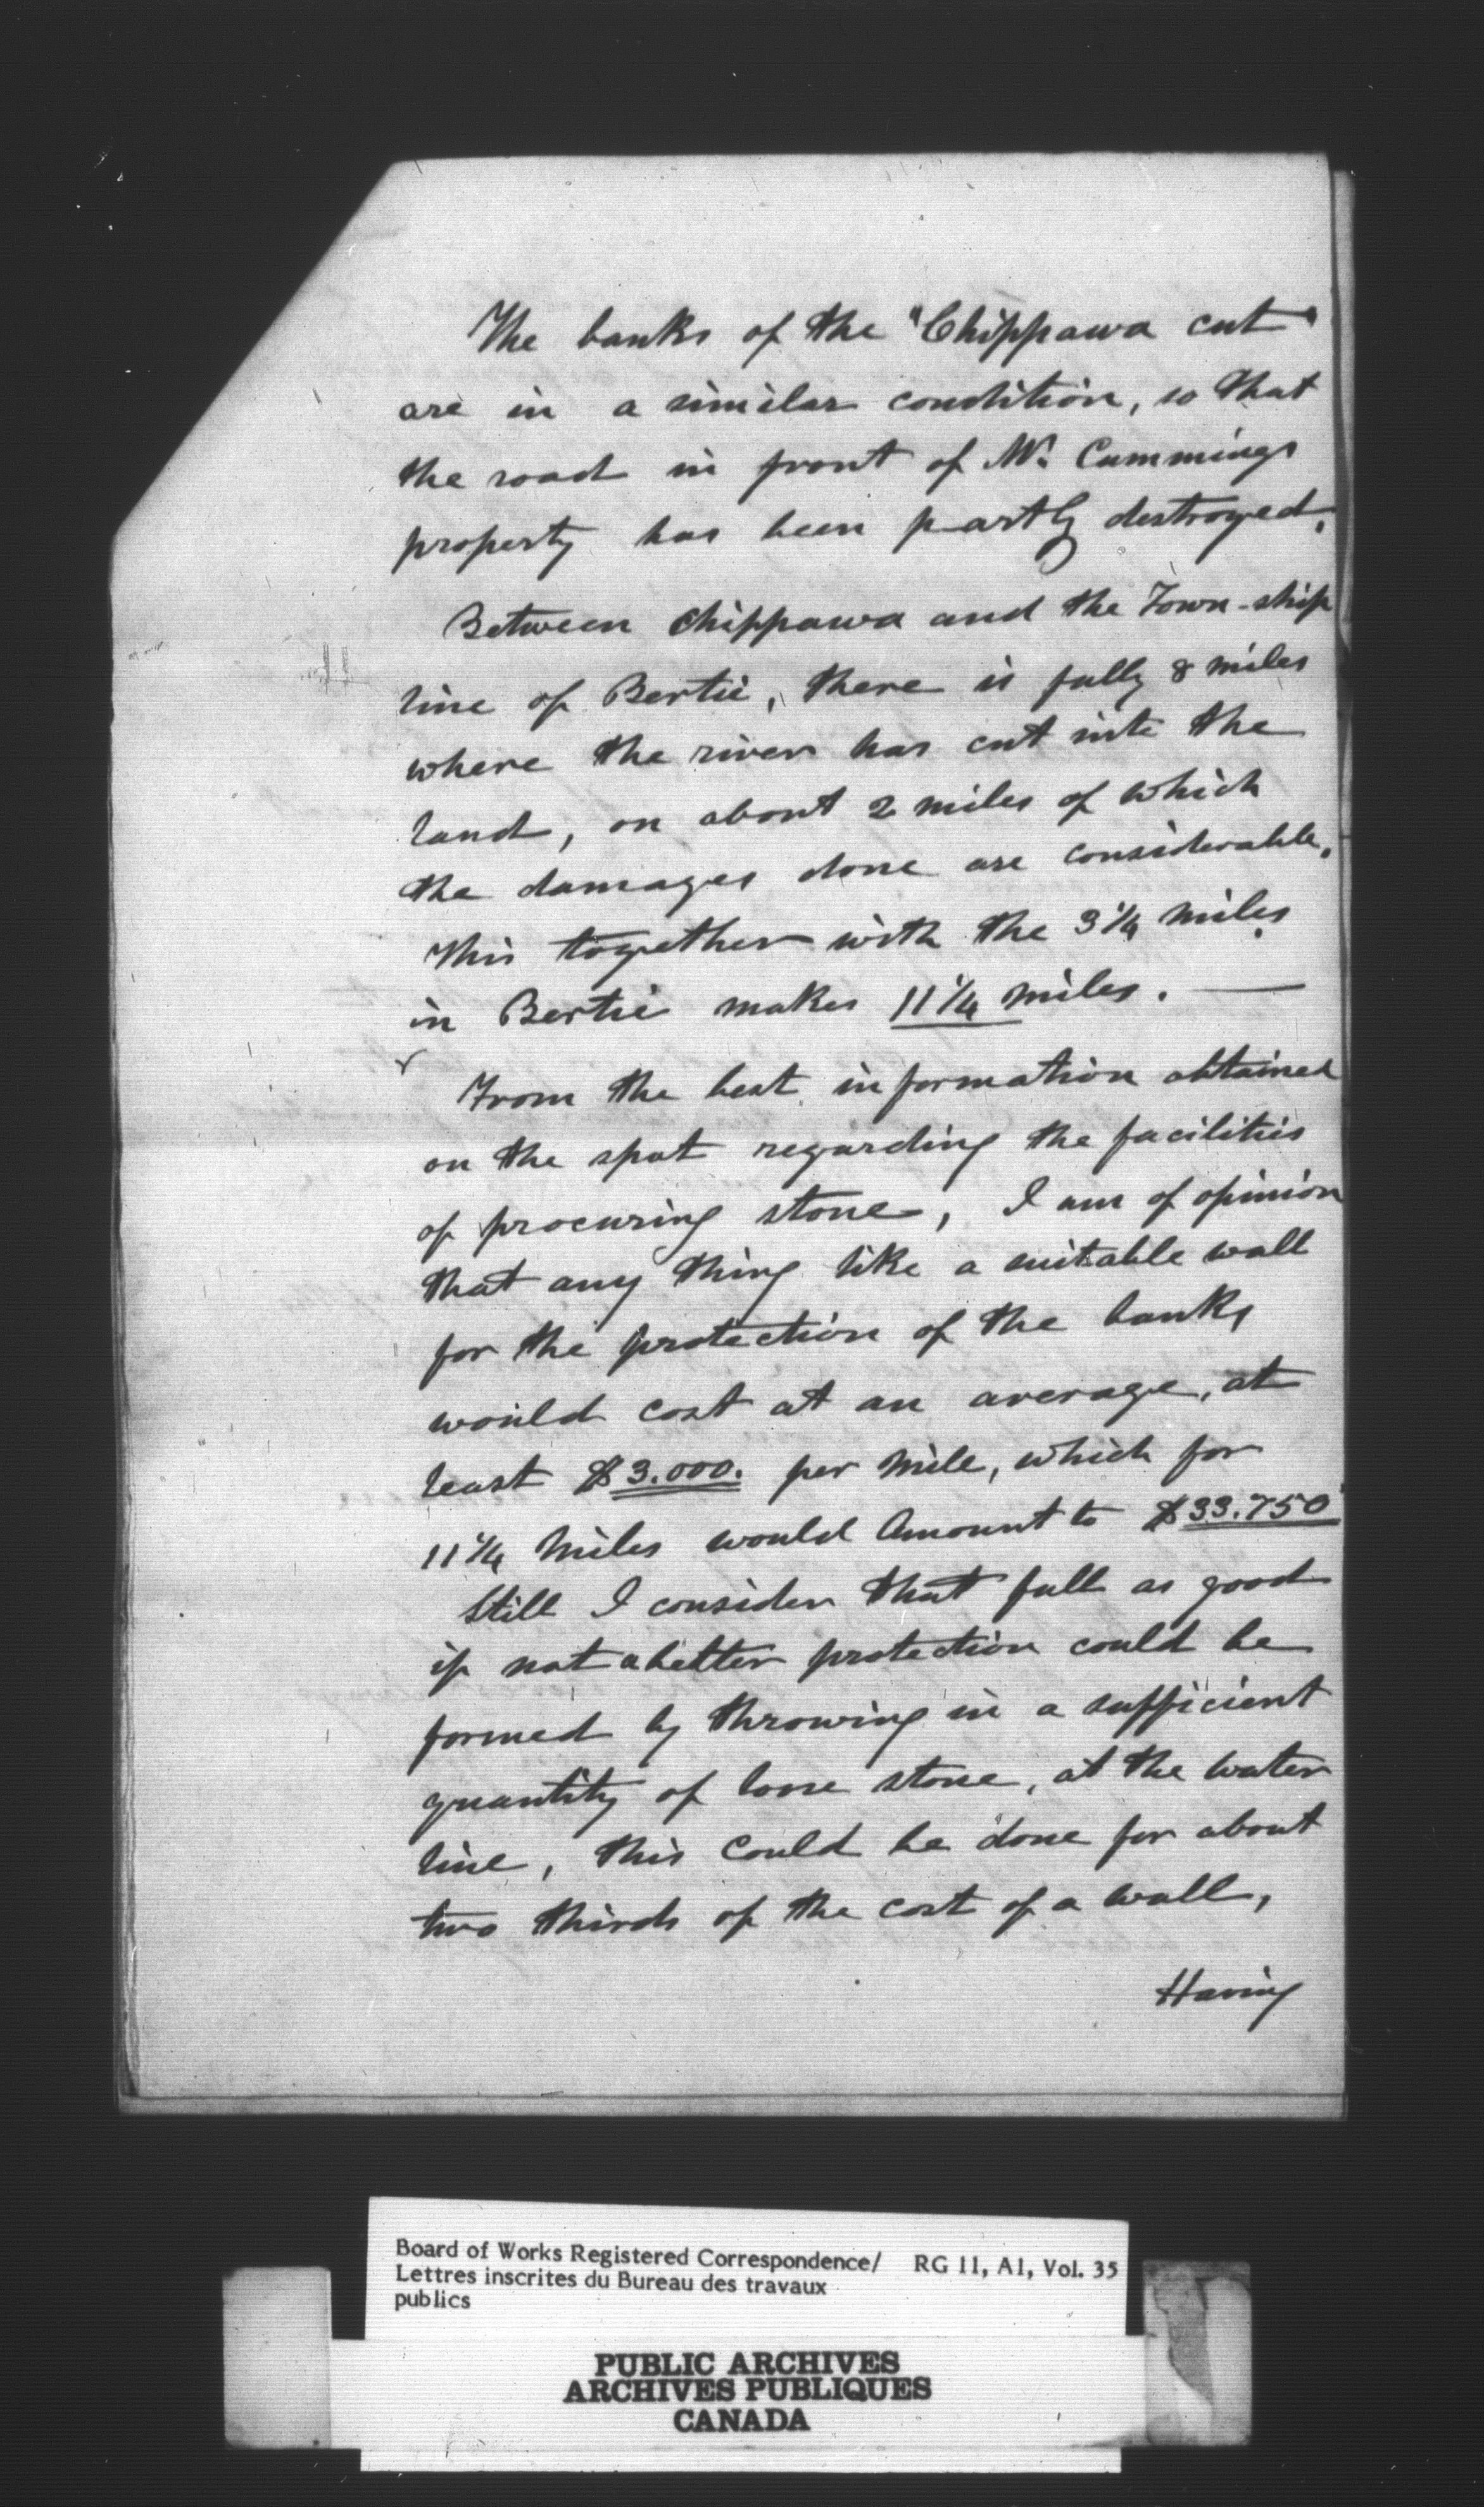 The banks of the "Chippawa cut"
are in a similar condition, so that
the road in front of Mr. Cummings
property has been partly destroyed.
Between Chippawa and the Town-ship
line of Bertie, there is fully 8 miles
where the river has cut into the
land, on about 2 miles of which
the damages done are considerable.
This together with the 3 1/4 miles
in Bertie makes 11 1/4 miles. —
From the best information obtained
on the spot regarding the facilities
of procuring stone, I am of opinion
that any thing like a suitable wall
for the protection of the banks
would cost at an average, at
least $3.000. per mile, which for
11 1/4 Miles would Amount to $33.750
Still I consider that full as good
if not a better protection could be
formed by throwing in a sufficient
quantity of loose stone, at the water
line, this Could be done for about
two thirds of the cost of a wall,
Having
Board of Works Registered Correspondence/ RG 11, A1, Vol. 35
Lettres inscrites du Bureau des travaux
publics
PUBLIC ARCHIVES
ARCHIVES PUBLIQUES
CANADA